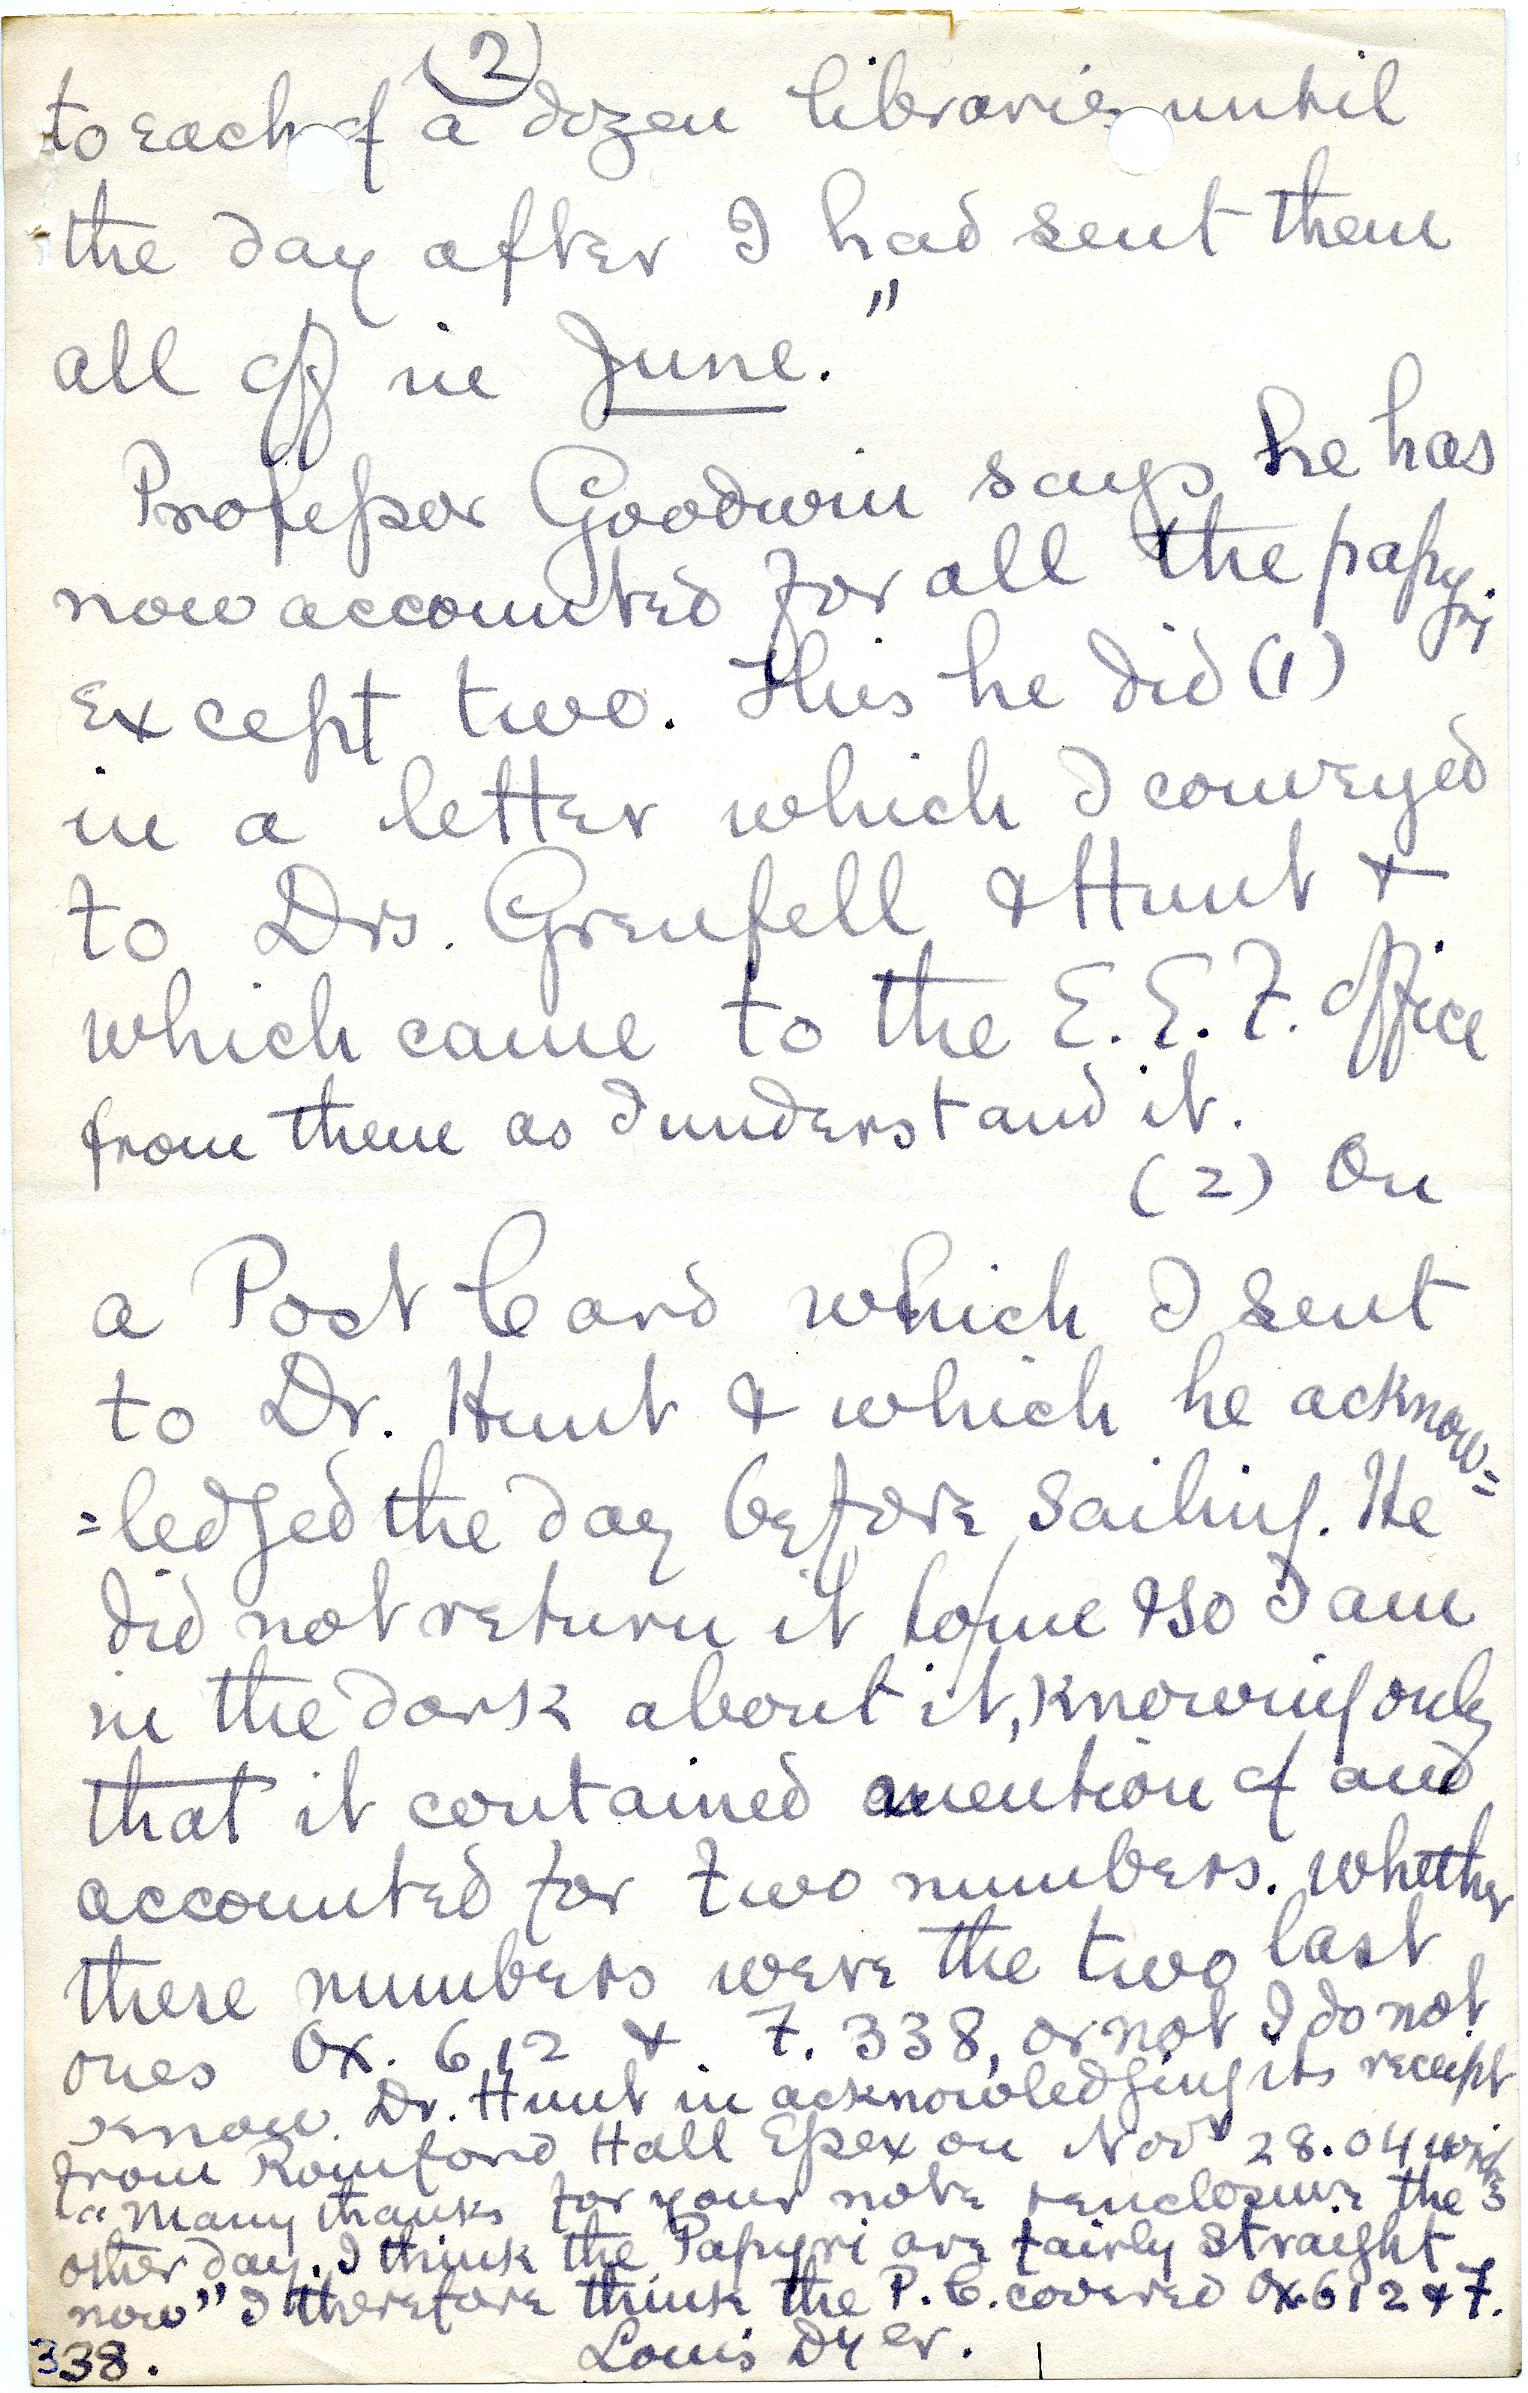 (2)
to each of a dozen libraries until
the day after I had sent them
all off in June."
Professor Goodwin says he has
now accounted for all the papyri
Except two. This he did (1)
in a letter which I conveyed
to Drs. Grenfell & Hunt &
which came to the E. E. F. office
from them as I understand it.
(2) On
a Post Card which I sent
to Dr. Hunt & which he acknow=
=ledged the day before sailing. He
did not return it to me & so I am
in the dark about it, knowing only
that it contained mention of and
accounted for two numbers. Whether
these numbers were the two last
ones Ox. 612 & F. 338, or not I do not
know. Dr. Hunt in acknowledging its receipt
from Romford Hall Essex on Nov 28. 04 writes
"Many thanks for your note & enclosure the
other day. I think the Papyri are fairly straight
now" I therefore think the P. C. covered Ox 612 & F.
338.
Louis Dyer.